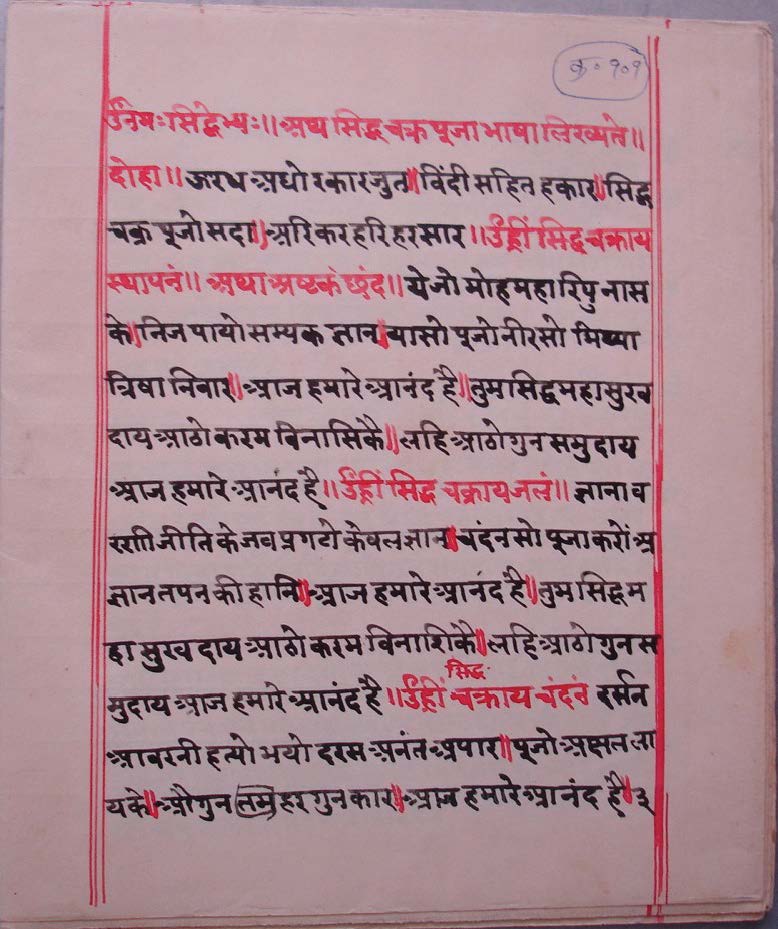 क्र॰ १०१
ॐनमःसिद्धेभ्यः॥अथ सिद्ध चक्र पूजा भाषा लिख्यते॥
दोहा॥ ऊरध अधो रकार जुत॥विंदी सहित हकार॥सिद्ध
चक्र पूजो सदा॥अरि कर हरि हर सार॥ॐह्रीं सिद्ध चक्राय
स्थापनं॥अथा अष्टकं छंद॥ ये जो मोह महा रिपु नास
के॥निज पायो सम्यक ज्ञान॥यासो पूजो नीरसो मिथ्या
त्रिषा निवार॥आज हमारे आनंद है॥तुम सिद्ध महा सुख
दाय आठो करम विनासिकै॥लहि आठो गुन समुदाय
आज हमारे आनंद है॥ॐह्रीं सिद्ध चक्राय जलं॥ ज्ञानाव
रणी जीति के जब प्रगटो केवल ज्ञान॥चदंन सो पूजा करों अ
ज्ञान तपन की हानि॥आज हमारे आनंद है॥तुम सिद्ध म
हा सुख दाय आठो करम विनाशिकै॥लहि आठो गुन स
मुदाय आज हमारे आनंद है॥ॐह्रीं सिद्ध चक्राय चंदनं दर्सन
आवरनी हत्यो भयो दरस अनंत अपार॥पूजो अक्षत ला
यके॥औगुन तम हर गुन कार॥आज हमारे आनंद है॥३